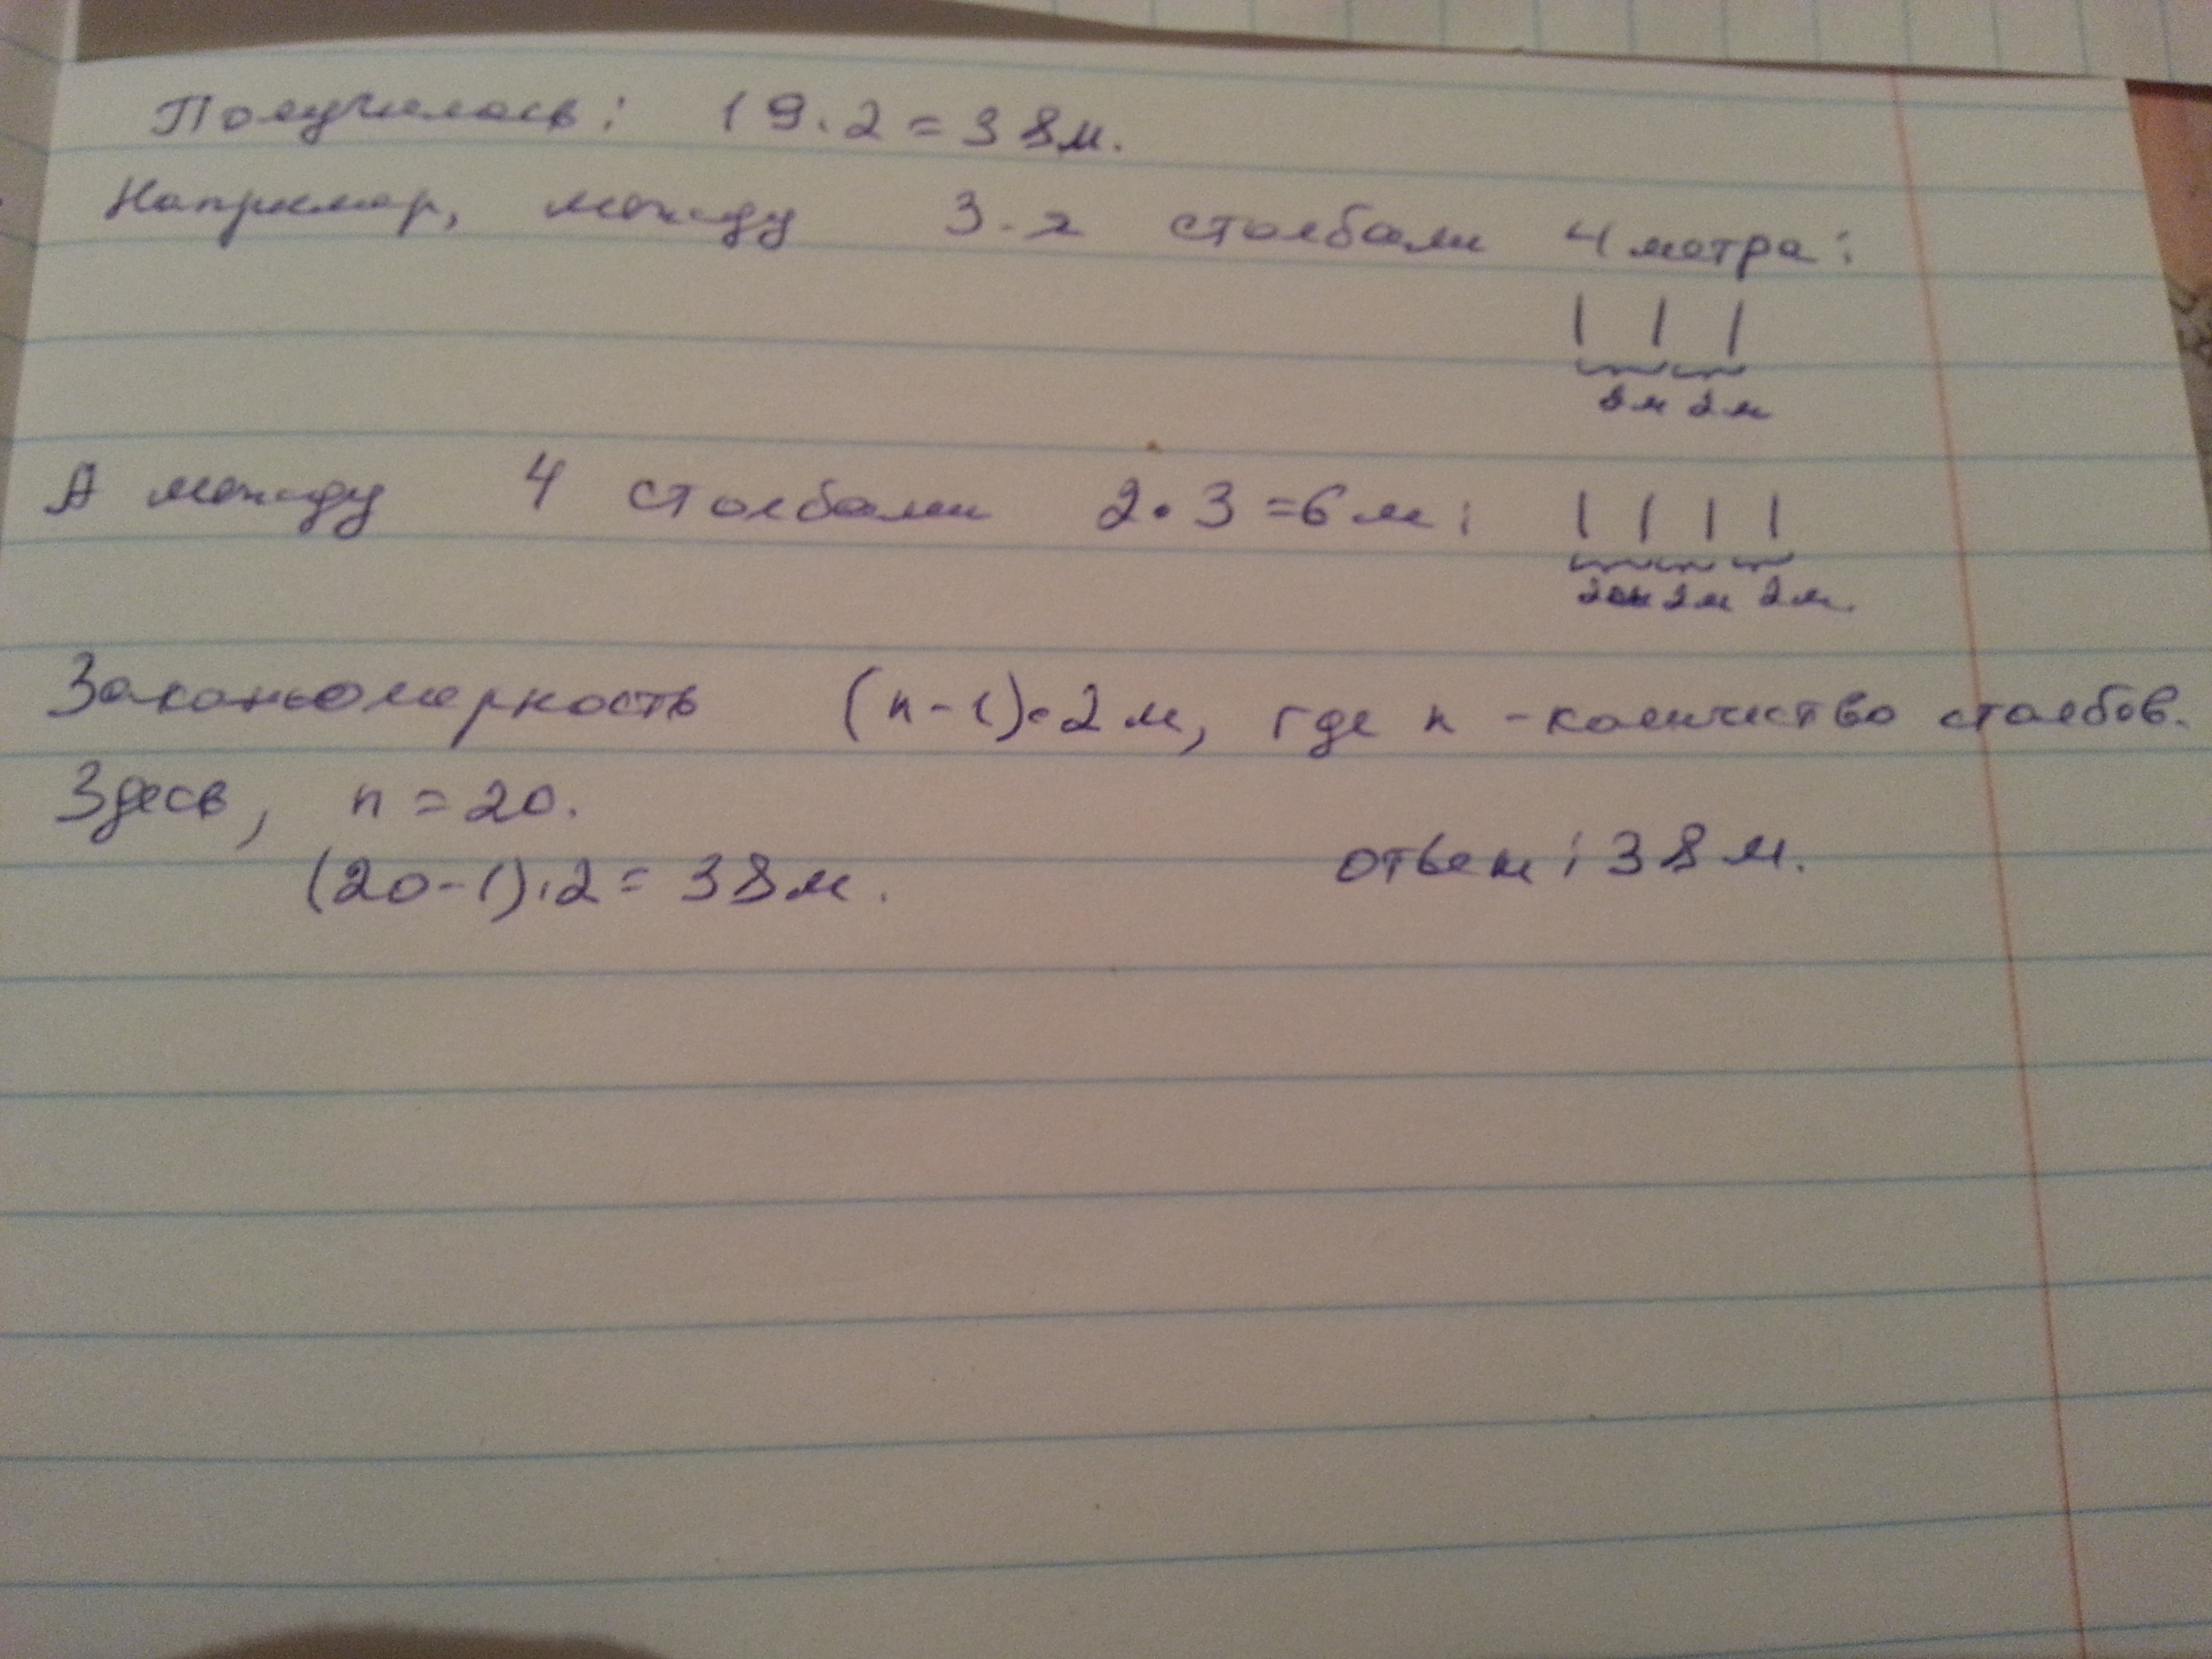 Получилось: 19.2=38м.
Например, между 3-я столбами 4 метра:
2м 2м
А между 4 столбами 2·3=6м:
2м 2м 2м.
Закономерность (n-1)·2м, где n -количество столбов.
Здесь, n=20.
(20-1).2=38м.
ответ: 38м.